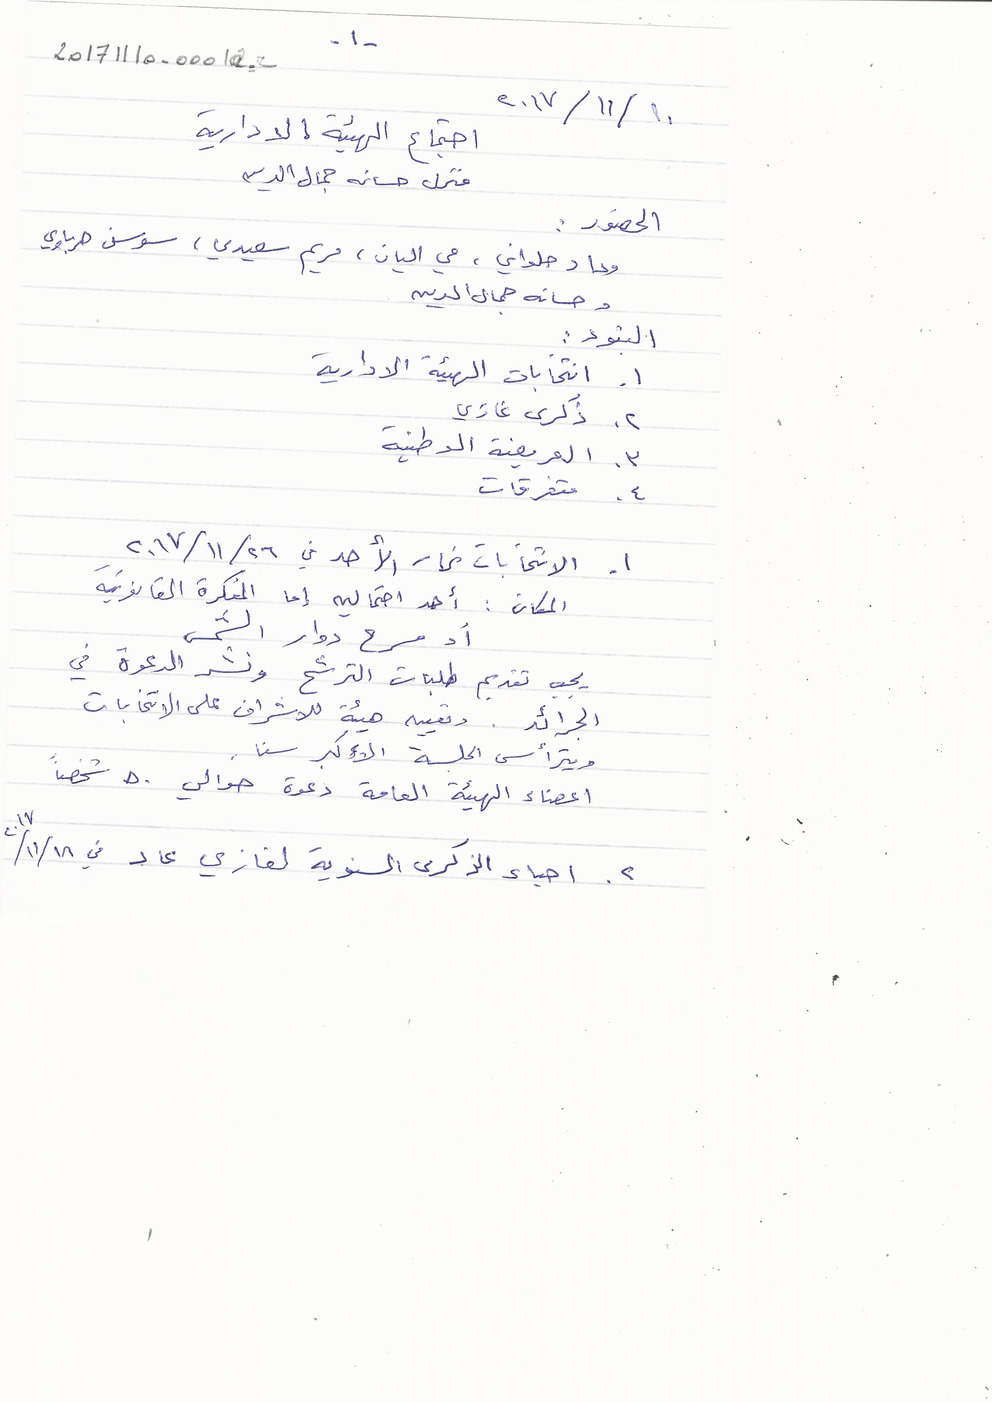 -١-
20171110-0001
٢٠١٧/١١/١٠
اجتماع الهيئة الادارية
منزل حسانه جمال الدين
الحضور :
وداد حلواني ، مي اليان ، مريم سعيدي ، سوسن هرباوي
و حسانه جمال الدين
البنود :
١. انتخابات الهيئة الادارية
٢. ذكرى غازي
٣. العريضة الوطنية
٤. متفرقات
١. الانتخابات نهار الأحد في ٢٠١٧/١١/٢٦
المكان : أحد احتمالين إما المفكرة القانونية
أو مسرح دوار الشمس
يجب تقديم طلبات الترشح ونشر الدعوة في
الجرائد . وتعيين هيئة للاشراف على الانتخابات
ويترأس الجلسة الأكبر سنا .
اعضاء الهيئة العامة دعوة حوالي ٥٠ شخصاً
٢. احياء الذكرى السنوية لغازي عاد في ٢٠١٧/١١/١٨